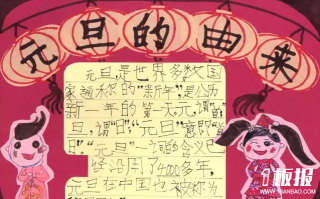 元旦的由来
元旦,是世界多数国
家通称的“新年”,是公历
新一年的第一天元,谓“首”
旦,谓“日”;“元旦”意即“首
日”。“元旦”一词的含义已
经沿用了4000多年,
元旦在中国也被称为
板报
WWW.BANBAO.COM